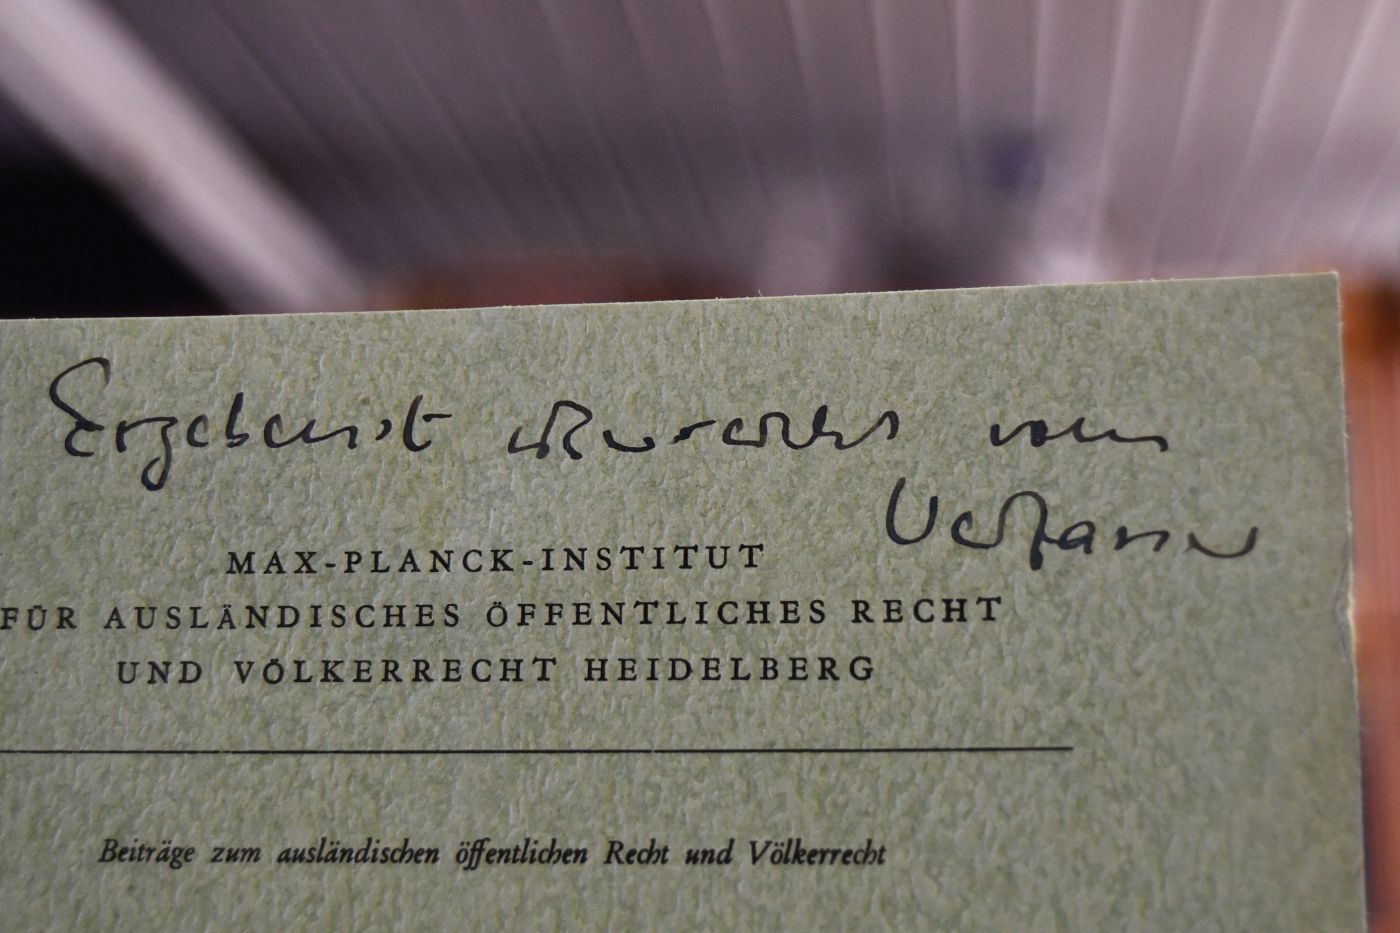 Ergebenst überreicht vom
Verfasser
MAX-PLANCK-INSTITUT
FÜR AUSLÄNDISCHES ÖFFENTLICHES RECHT
UND VÖLKERRECHT HEIDELBERG
Beiträge zum ausländischen öffentlichen Recht und Völkerrecht